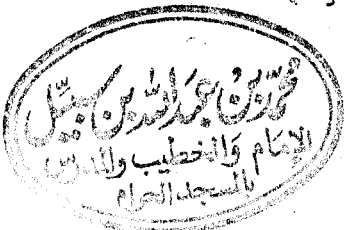 محمد بن عبد الله بن سبيّل
الإمام والخطيب والمدرس
بالمسجد الحرام